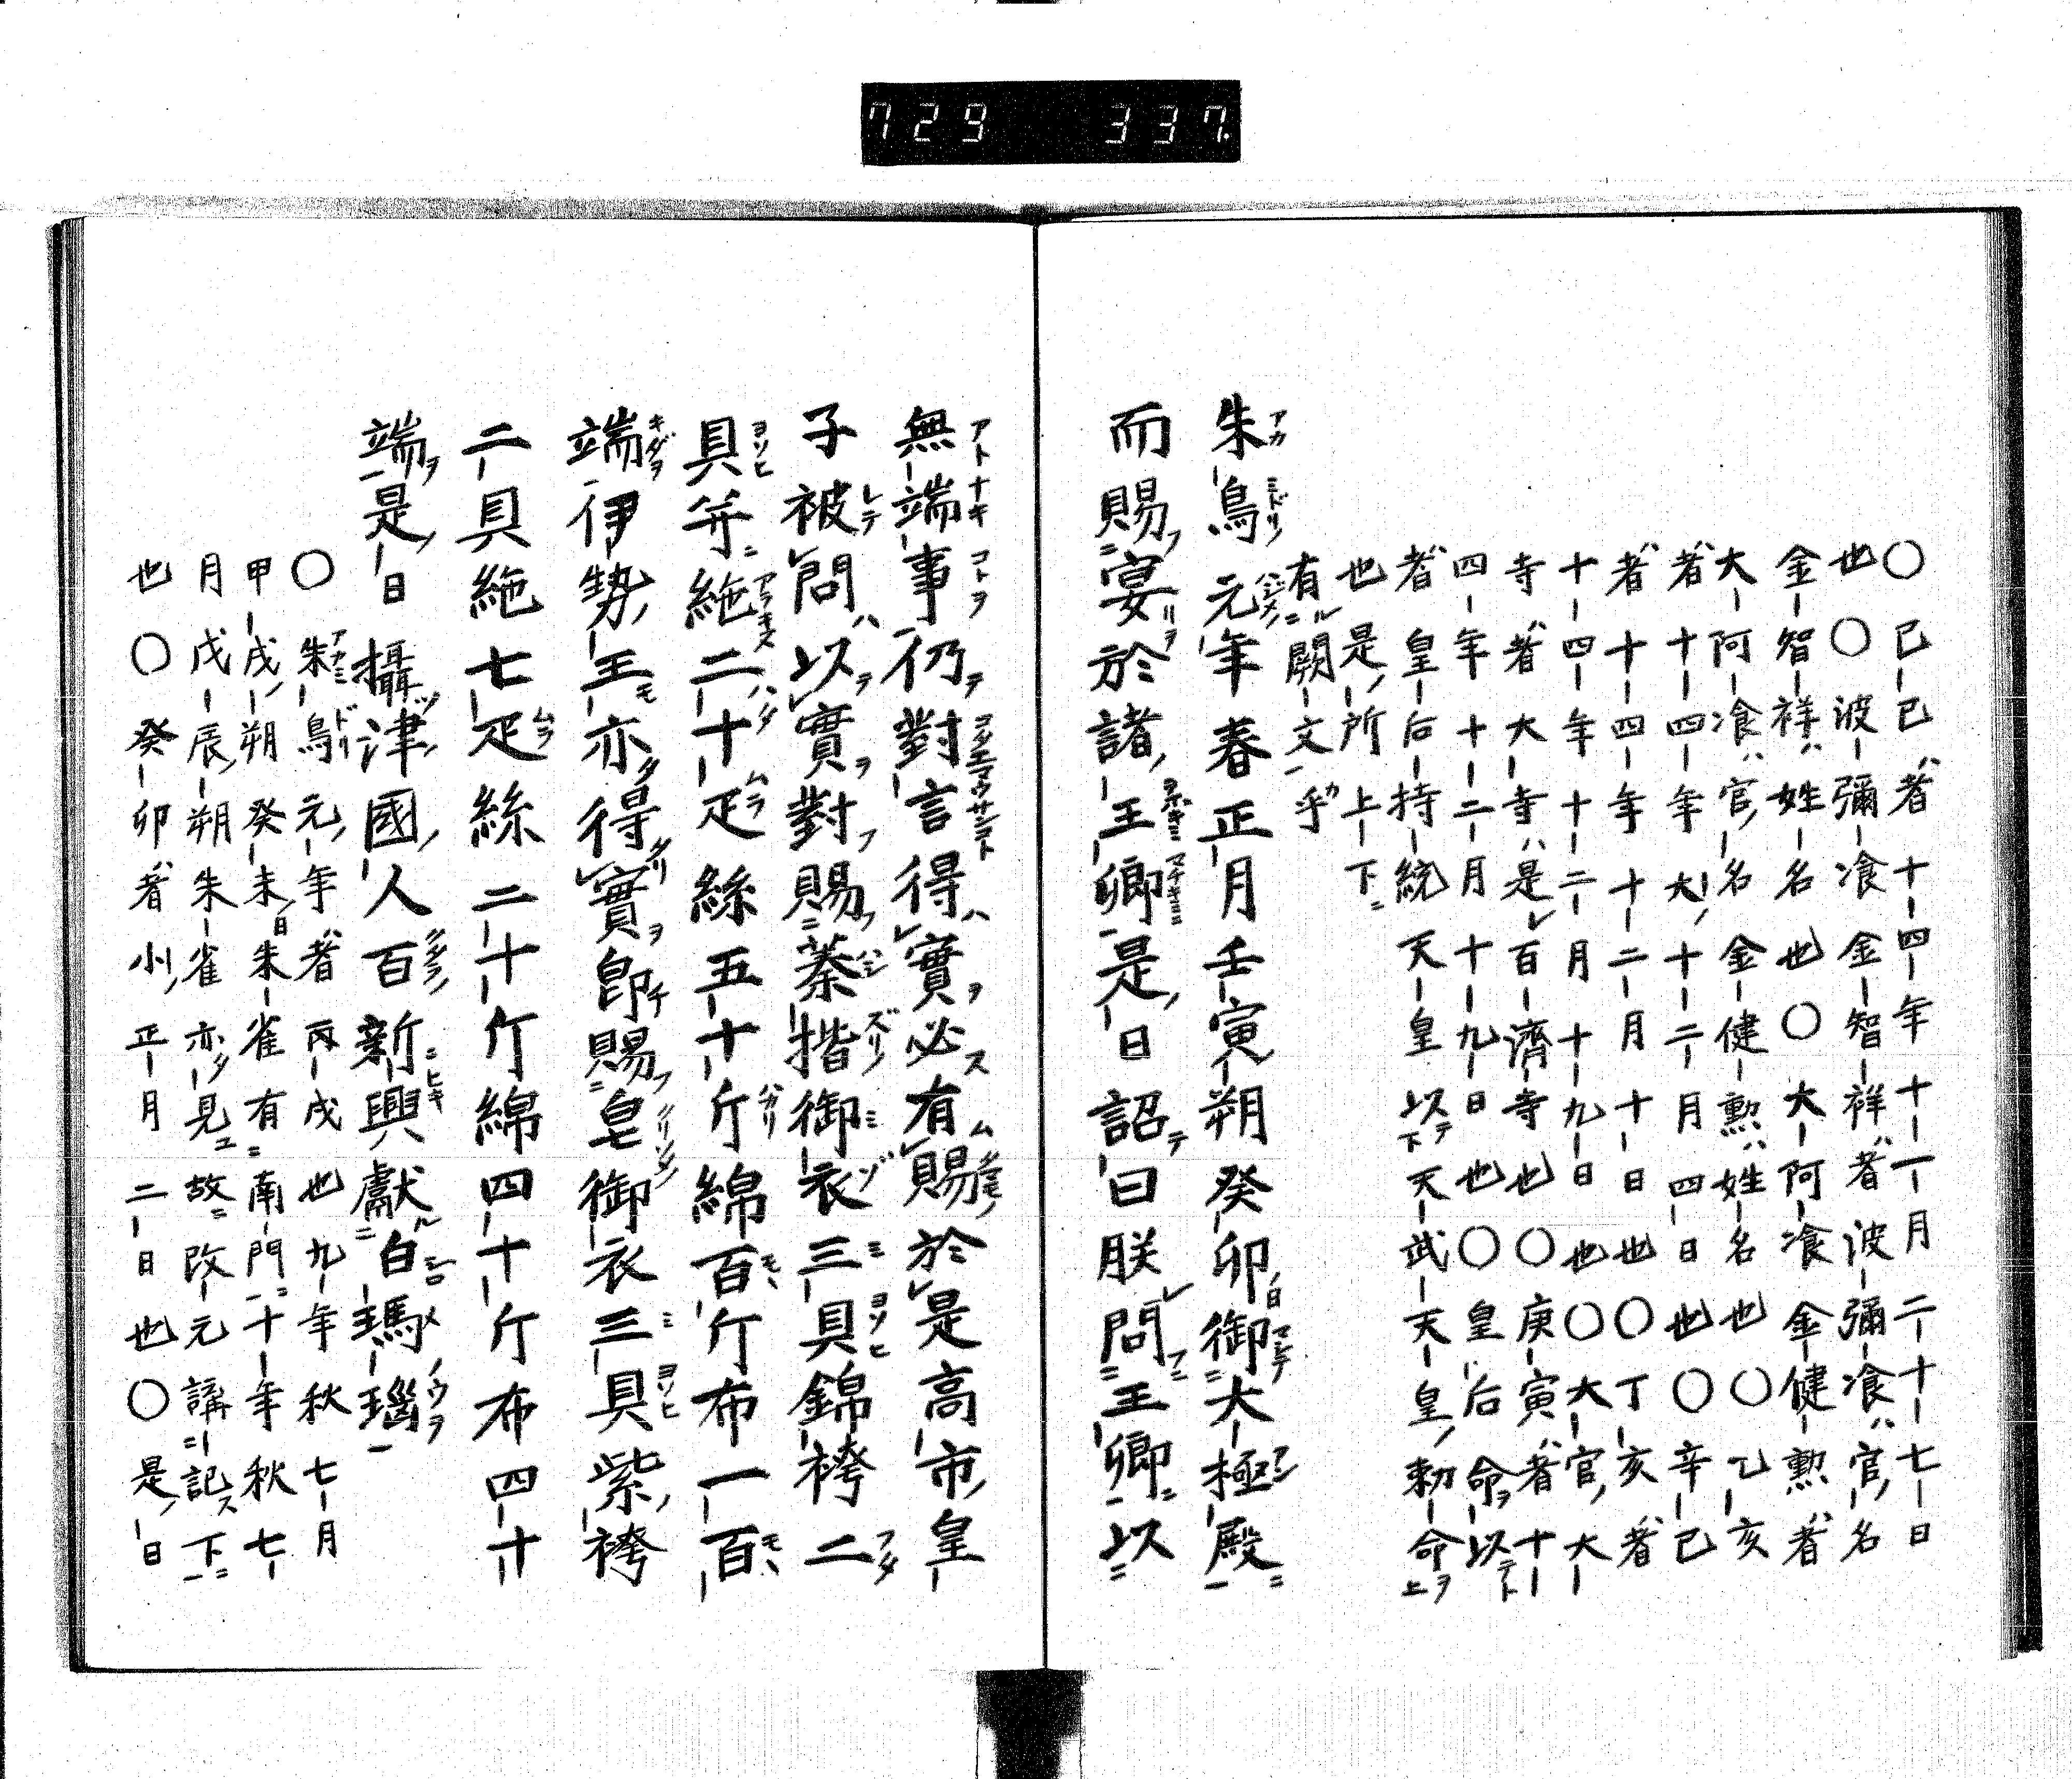 729 337
〇己巳者十四年十一月二十七日
也〇波彌飡金智祥者波彌飡官名
金智祥姓名也〇大阿飡金健勲者
大阿飡官名金健勲姓名也〇乙亥
者十四年大十二月四日也〇辛己
者十四年十二月十日也〇丁亥者
十四年十二月十九日也〇大官大
寺者大寺是百濟寺也〇庚寅者十
四年十二月十九日也〇皇后命以
者皇后持統天皇以天武天皇勅命
也是所上下
有闕文乎
朱鳥元年春正月壬寅朔癸卯御大極殿
而賜宴於諸王卿是日詔曰朕問王卿以
無端事仍對言得實必有賜於是高市皇
子被問以實對賜蓁揩御衣三具錦袴二
具并絁二十疋絲五十斤綿百斤布一百
端伊勢王亦得實即賜皂御衣三具紫袴
二具絁七疋絲二十斤綿四十斤布四十
端是日攝津國人百新興獻白瑪瑙
〇朱鳥元年者丙戌也九年秋七月
甲戌朔癸未朱雀有南門十年秋七
月戊辰朔朱雀亦見故改元講記下
也〇癸卯者小正月二日也〇是日